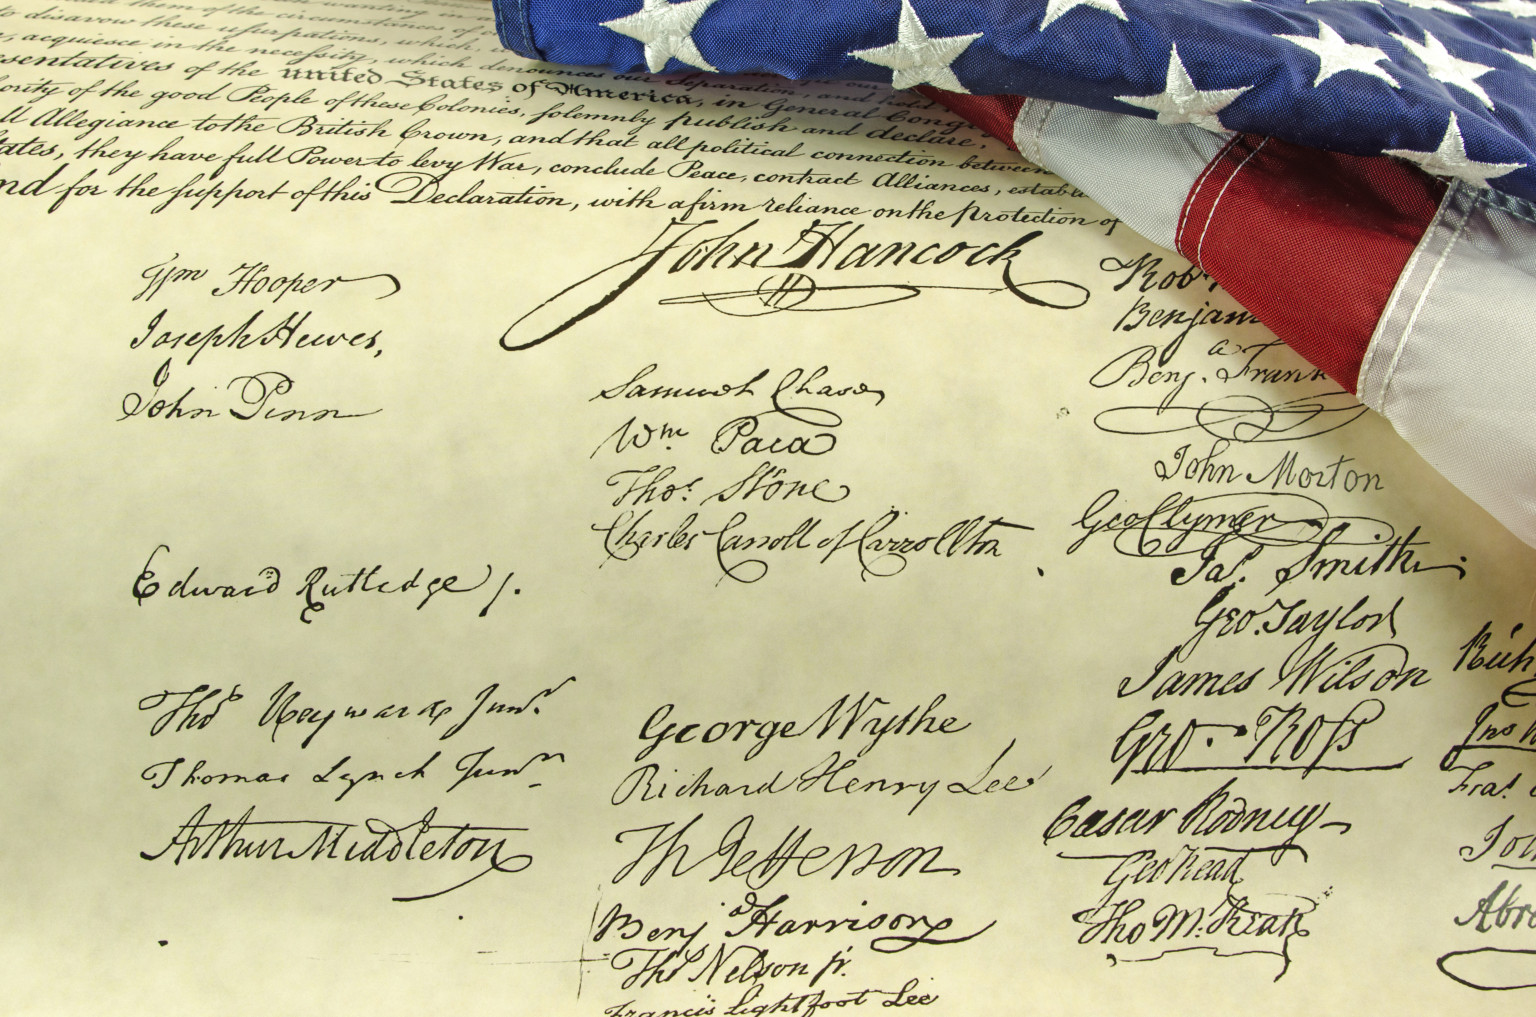 them of the circumstances of
to disavow these usurpations, which, w
, acquiesce in the necessity, which denounces our Separation, and hold
sentatives of the united States of America, in General Congre
ority of the good People of these Colonies, solemnly publish and declare,
ll Allegiance to the British Crown, and that all political connection between
tates, they have full Power to levy War, conclude Peace, contract Alliances, establ
nd for the support of this Declaration, with a firm reliance on the protection of
John Hancock
Wm Hooper
Joseph Hewes,
John Penn
Edward Rutledge /.
Thos Heyward Junr.
Thomas Lynch Junr.
Arthur Middleton
Samuel Chase
Wm. Paca
Thos. Stone
Charles Carroll of Carrollton
George Wythe
Richard Henry Lee
Th Jefferson
Benja Harrison
Thos Nelson jr.
Francis Lightfoot Lee
Rob
Benjam
Benja. Frank
John Morton
Geo Clymer
Jas. Smith.
Geo. Taylor
James Wilson
Geo. Ross
Caesar Rodney
Geo Read
Tho M:Kean
Rich
Jno
Fras.
Joh
Abra